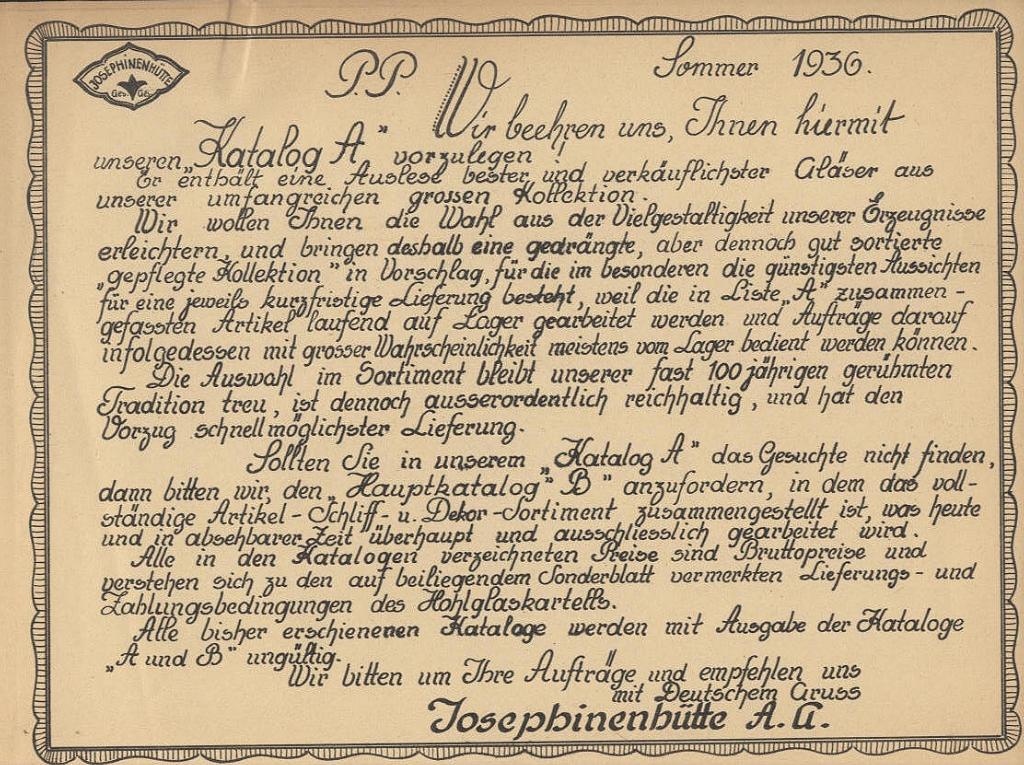 JOSEPHINENHÜTTE
Ges. Gesch.
P.P.
Sommer 1936.
Wir beehren uns, Ihnen hiermit
unseren „Katalog A" vorzulegen!
Er enthält eine Auslese bester und verkäuflichster Gläser aus
unserer umfangreichen grossen Kollektion.
Wir wollen Ihnen die Wahl aus der Vielgestaltigkeit unserer Erzeugnisse
erleichtern, und bringen deshalb eine gedrängte, aber dennoch gut sortierte
„gepflegte Kollektion" in Vorschlag, für die im besonderen die günstigsten Aussichten
für eine jeweils kurzfristige Lieferung besteht, weil die in Liste „A" zusammen-
gefassten Artikel laufend auf Lager gearbeitet werden und Aufträge darauf
infolgedessen mit grosser Wahrscheinlichkeit meistens vom Lager bedient werden können.
Die Auswahl im Sortiment bleibt unserer fast 100 jährigen gerühmten
Tradition treu, ist dennoch ausserordentlich reichhaltig, und hat den
Vorzug schnellmöglichster Lieferung.
Sollten Sie in unserem „Katalog A" das Gesuchte nicht finden,
dann bitten wir, den „Hauptkatalog" B" anzufordern, in dem das voll-
ständige Artikel-Schliff- u. Dekor-Sortiment zusammengestellt ist, was heute
und in absehbarer Zeit überhaupt und ausschliesslich gearbeitet wird.
Alle in den Katalogen verzeichneten Preise sind Bruttopreise und
verstehen sich zu den auf beiliegendem Sonderblatt vermerkten Lieferungs- und
Zahlungsbedingungen des Hohlglaskartells.
Alle bisher erschienenen Kataloge werden mit Ausgabe der Kataloge
„A und B" ungültig.
Wir bitten um Ihre Aufträge und empfehlen uns
mit Deutschem Gruss
Josephinenhütte A.G.